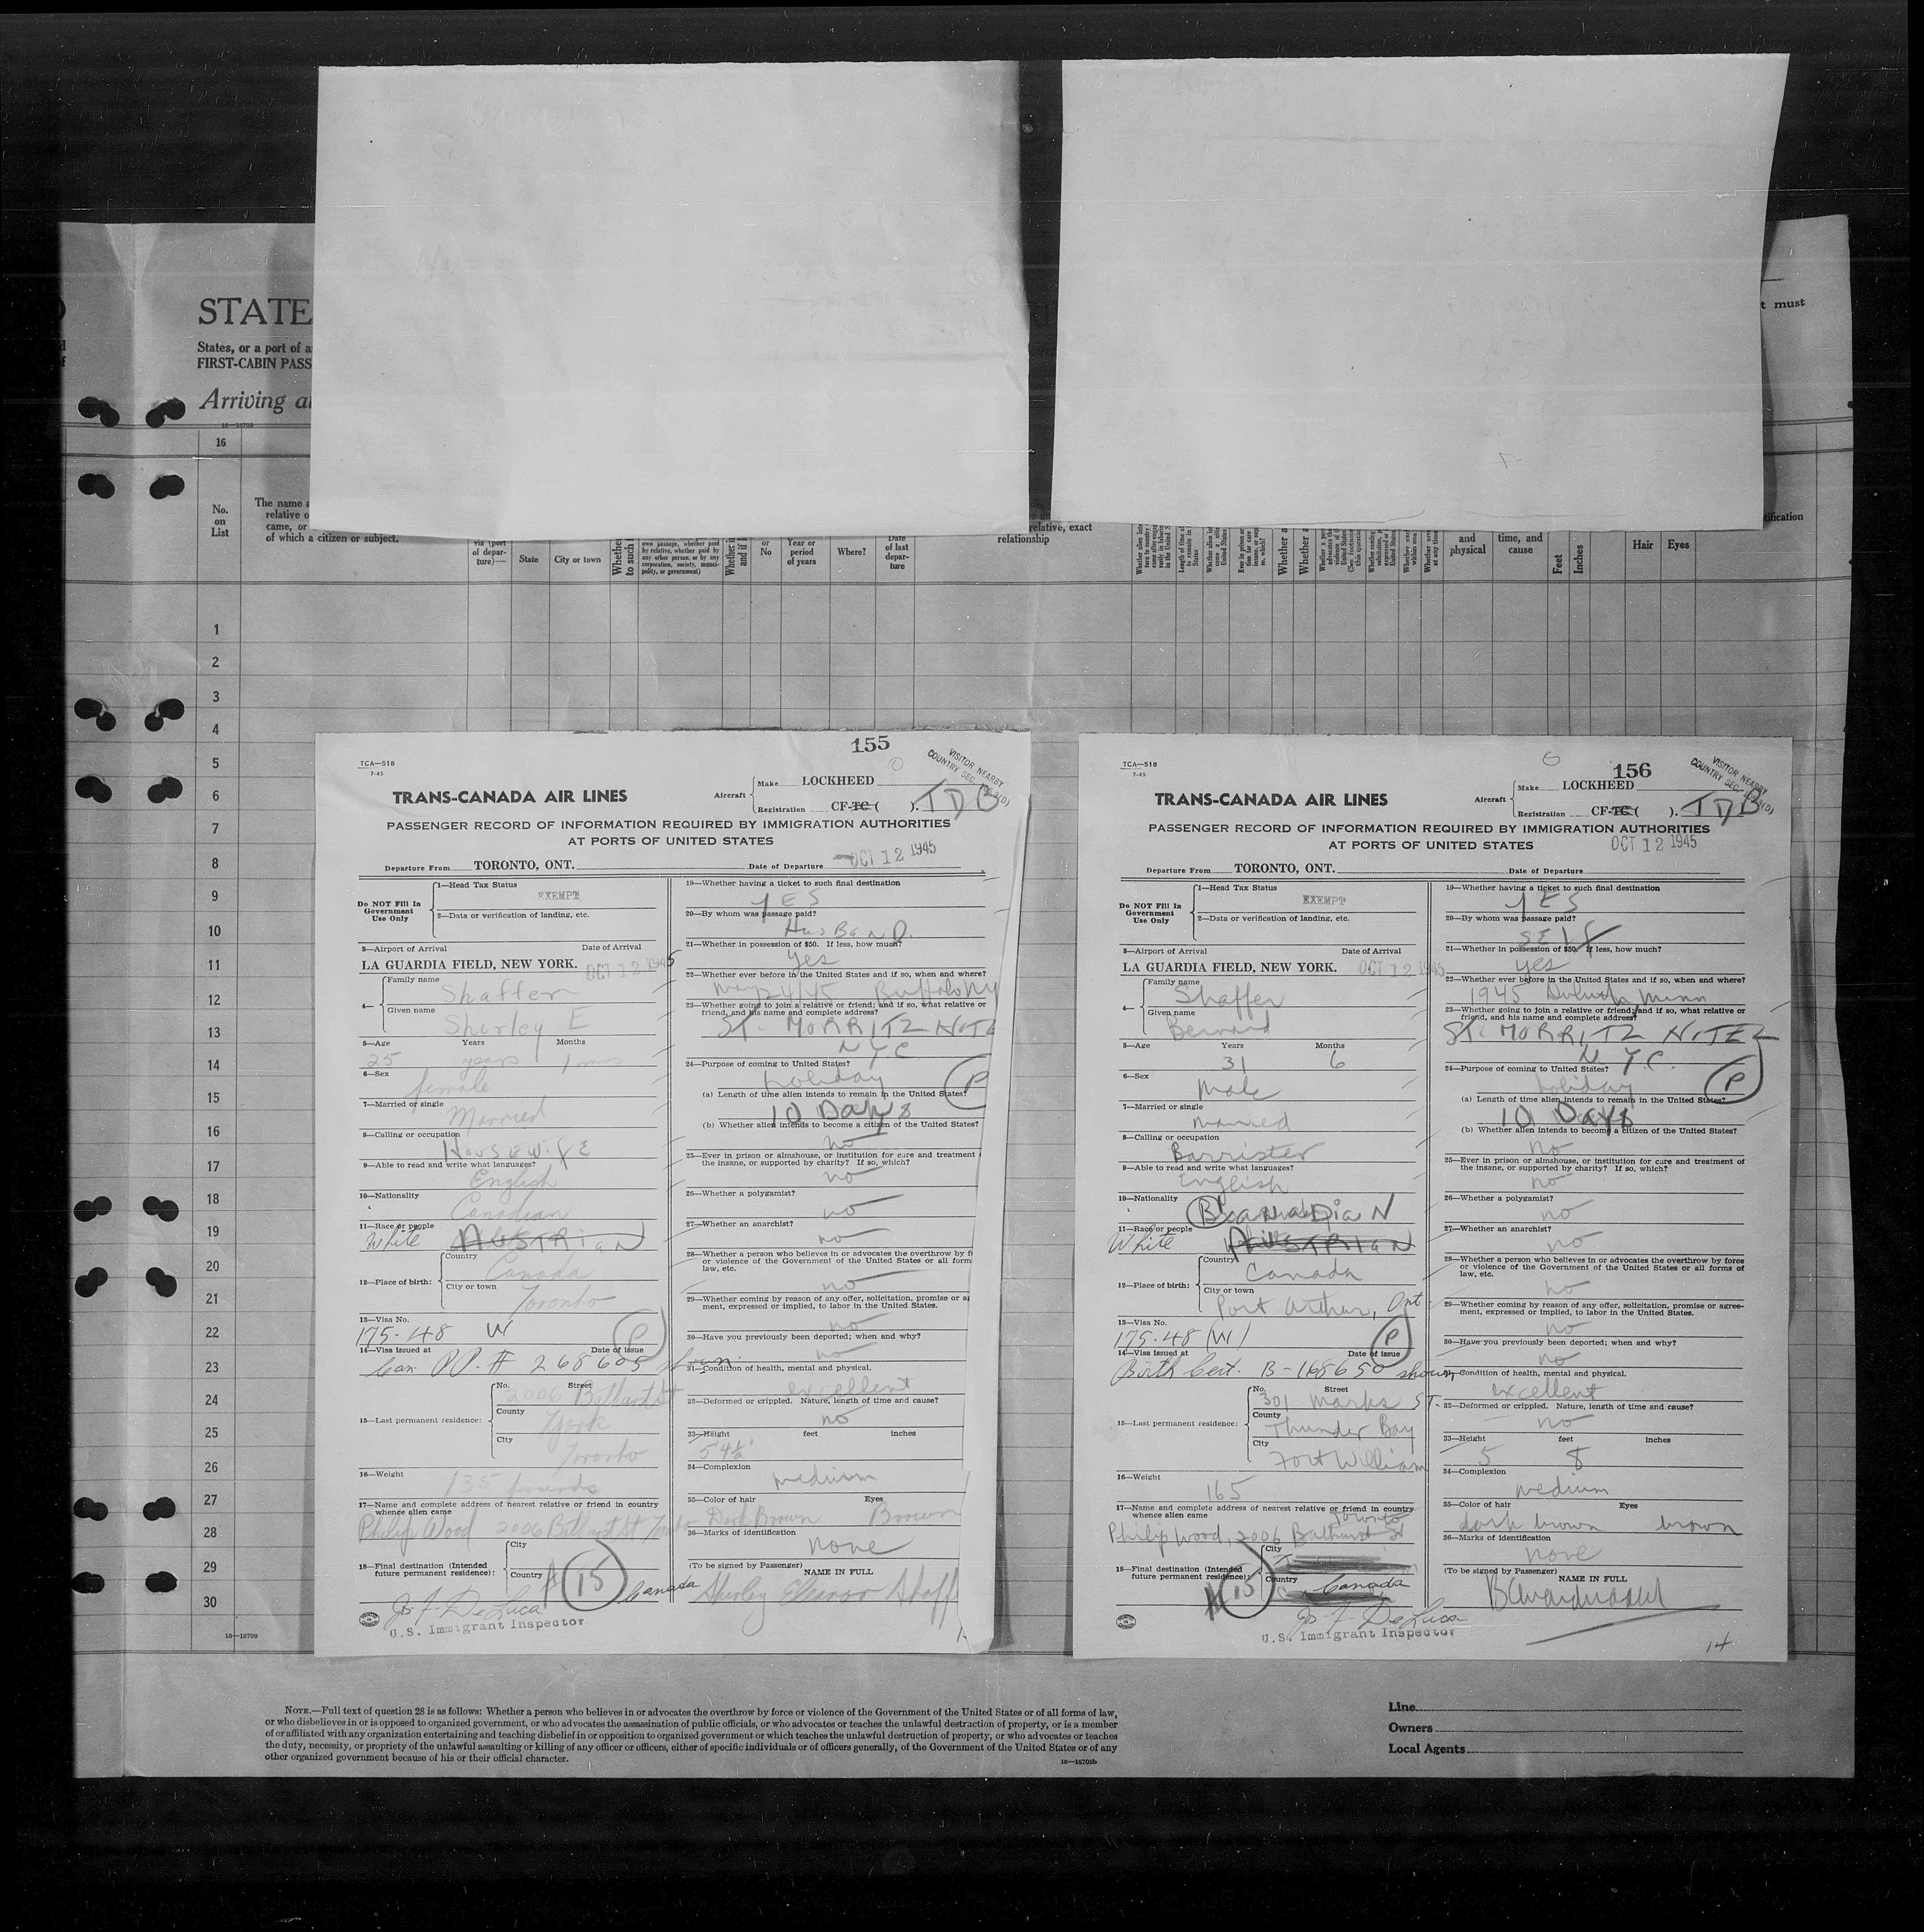 STATE
States, or a port of a
FIRST-CABIN PASS
Arriving a
t must
16—18709
16
No.
on
List
The name a
relative o
came, or
of which a citizen or subject.
via (port
of depar-
ture)—
State
City or town
Whether
to such
own passage, whether paid
by relative, whether paid by
any other person, or by any
corporation, society, munici-
pality, or government)
or
No
Year or
period
of years
Where?
Date
of last
depar-
ture
relative, exact
relationship
and
physical
time, and
cause
Feet
Inches
Hair
Eyes
tification
1
2
3
4
5
6
7
8
9
10
11
12
13
14
15
16
17
18
19
20
21
22
23
24
25
26
27
28
29
30
16—18709
155
TCA—518
7-45
VISITOR NEARBY
COUNTRY SEC.
TRANS-CANADA AIR LINES
Aircraft
Make LOCKHEED
Registration CF-TC ( ). TDB
PASSENGER RECORD OF INFORMATION REQUIRED BY IMMIGRATION AUTHORITIES
AT PORTS OF UNITED STATES
Departure From TORONTO, ONT. Date of Departure OCT 12 1945
Do NOT Fill In
Government
Use Only
1—Head Tax Status
EXEMPT
2—Data or verification of landing, etc.
3—Airport of Arrival Date of Arrival
LA GUARDIA FIELD, NEW YORK. OCT 12 1945
4— Family name
Shaffer
Given name
Shirley E
5—Age Years Months
25 years 1 mos
6—Sex
female
7—Married or single
Married
8—Calling or occupation
HOUSEWIFE
9—Able to read and write what languages?
English
10—Nationality
Canadian
11—Race or people
White AUSTRIAN
12—Place of birth:
Country
Canada
City or town
Toronto
13—Visa No.
175-48 W P
14—Visa issued at Date of issue
Can. PP. # 268605 shown
15—Last permanent residence:
No. Street
2006 Bathurst St
County
York
City
Toronto
16—Weight
135 pounds
17—Name and complete address of nearest relative or friend in country
whence alien came
Philip Wood 2006 Bathurst St Toronto
18—Final destination (Intended
future permanent residence):
City
Country
15 Canada
Jos. F. DeLuca
U.S. Immigrant Inspector
19—Whether having a ticket to such final destination
YES
20—By whom was passage paid?
HusBanD.
21—Whether in possession of $50. If less, how much?
yes
22—Whether ever before in the United States and if so, when and where?
May 24/45 Buffalo NY
23—Whether going to join a relative or friend; and if so, what relative or
friend, and his name and complete address?
ST. MORRITZ HOTE
NYC
24—Purpose of coming to United States?
holiday P
(a) Length of time alien intends to remain in the United States?
10 Days
(b) Whether alien intends to become a citizen of the United States?
no
25—Ever in prison or almshouse, or institution for care and treatment
the insane, or supported by charity? If so, which?
no
26—Whether a polygamist?
no
27—Whether an anarchist?
no
28—Whether a person who believes in or advocates the overthrow by f
or violence of the Government of the United States or all form
law, etc.
no
29—Whether coming by reason of any offer, solicitation, promise or a
ment, expressed or implied, to labor in the United States.
no
30—Have you previously been deported; when and why?
no
31—Condition of health, mental and physical.
excellent
32—Deformed or crippled. Nature, length of time and cause?
no
33—Height feet inches
5'4½"
34—Complexion
medium
35—Color of hair Eyes
Dark Brown Brown
36—Marks of identification
none
(To be signed by Passenger) NAME IN FULL
Shirley Eleanor Shaff
156
TCA—518
7-45
VISITOR NEARBY
COUNTRY SEC.
TRANS-CANADA AIR LINES
Aircraft
Make LOCKHEED
Registration CF-TC ( ). TDB
PASSENGER RECORD OF INFORMATION REQUIRED BY IMMIGRATION AUTHORITIES
AT PORTS OF UNITED STATES OCT 12 1945
Departure From TORONTO, ONT. Date of Departure
Do NOT Fill In
Government
Use Only
1—Head Tax Status
EXEMPT
2—Data or verification of landing, etc.
3—Airport of Arrival Date of Arrival
LA GUARDIA FIELD, NEW YORK. OCT 12 1945
4— Family name
Shaffer
Given name
Bernard
5—Age Years Months
31 6
6—Sex
Male
7—Married or single
married
8—Calling or occupation
Barrister
9—Able to read and write what languages?
English
10—Nationality
CANADIAN
11—Race or people
White AUSTRIAN
12—Place of birth:
Country
Canada
City or town
Port Arthur, Ont
13—Visa No.
175-48 (W) P
14—Visa issued at Date of issue
Birth Cert. B-168650 shown
15—Last permanent residence:
No. Street
301 Marks ST.
County
Thunder Bay
City
Fort William
16—Weight
165
17—Name and complete address of nearest relative or friend in country
whence alien came
Toronto
Philip Wood, 2006 Bathurst St
18—Final destination (Intended
future permanent residence):
City
Country
15 Canada
Jos. F. DeLuca
U.S. Immigrant Inspector
19—Whether having a ticket to such final destination
YES
20—By whom was passage paid?
SELF
21—Whether in possession of $50. If less, how much?
yes
22—Whether ever before in the United States and if so, when and where?
1945 Duluth Minn
23—Whether going to join a relative or friend; and if so, what relative or
friend, and his name and complete address?
ST. MORRITZ HOTEL
N.Y.C.
24—Purpose of coming to United States?
holiday P
(a) Length of time alien intends to remain in the United States?
10 Days
(b) Whether alien intends to become a citizen of the United States?
No
25—Ever in prison or almshouse, or institution for care and treatment of
the insane, or supported by charity? If so, which?
no
26—Whether a polygamist?
no
27—Whether an anarchist?
no
28—Whether a person who believes in or advocates the overthrow by force
or violence of the Government of the United States or all forms of
law, etc.
no
29—Whether coming by reason of any offer, solicitation, promise or agree-
ment, expressed or implied, to labor in the United States.
no
30—Have you previously been deported; when and why?
no
31—Condition of health, mental and physical.
excellent
32—Deformed or crippled. Nature, length of time and cause?
no
33—Height feet inches
5 8
34—Complexion
medium
35—Color of hair Eyes
dark brown brown
36—Marks of identification
none
(To be signed by Passenger)
NAME IN FULL
14
NOTE.—Full text of question 28 is as follows: Whether a person who believes in or advocates the overthrow by force or violence of the Government of the United States or of all forms of law,
or who disbelieves in or is opposed to organized government, or who advocates the assassination of public officials, or who advocates or teaches the unlawful destruction of property, or is a member
of or affiliated with any organization entertaining and teaching disbelief in or opposition to organized government or which teaches the unlawful destruction of property, or who advocates or teaches
the duty, necessity, or propriety of the unlawful assaulting or killing of any officer or officers, either of specific individuals or of officers generally, of the Government of the United States or of any
other organized government because of his or their official character.
16—18709b
Line
Owners
Local Agents